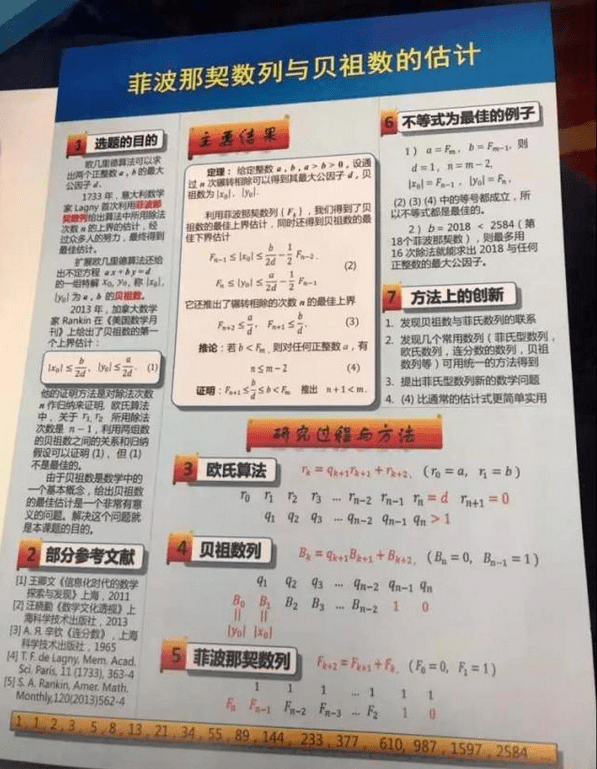 菲波那契数列与贝祖数的估计
1 选题的目的
欧几里德算法可以求
出两个正整数 a , b 的最大
公因子 d .
1733 年，意大利数学
家 Lagny 首次利用菲波那
契数列给出算法中所用除法
次数 n 的上界的估计，经
过众多人的努力，最终得到
最佳估计。
扩展欧几里德算法还给
出不定方程 ax + by = d
的一组特解 x₀, y₀, 称 |x₀|,
|y₀| 为 a , b 的贝祖数。
2013 年，加拿大数学
家 Rankin 在《美国数学月
刊》上给出了贝祖数的第一
个上界估计：
|x₀| ≤ b/2d, |y₀| ≤ a/2d. (1)
他的证明方法是对除法次数
n 作归纳来证明，欧氏算法
中，关于 r₁, r₂ 所用除法
次数是 n − 1，利用两组数
的贝祖数之间的关系和归纳
假设可以证明 (1)，但 (1)
不是最佳的。
由于贝祖数是数学中的
一个基本概念，给出贝祖数
的最佳估计是一个非常有意
义的问题。解决这个问题就
是本课题的目的。
2 部分参考文献
[1] 王卿文《信息化时代的数学
探索与发现》上海，2011
[2] 汪晓勤《数学文化透视》上
海科学技术出版社，2013
[3] А. Я. 辛钦《连分数》，上海
科学技术出版社，1965
[4] T. F. de Lagny, Mem. Acad.
Sci. Paris, 11 (1733), 363-4
[5] S. A. Rankin, Amer. Math.
Monthly,120(2013)562-4
主要结果
定理：给定整数 a , b , a > b > 0，设通
过 n 次辗转相除可以得到其最大公因子 d，贝
祖数为 |x₀|, |y₀|.
利用菲波那契数列 {Fₖ}，我们得到了贝
祖数的最佳上界估计，同时还得到贝祖数的最
佳下界估计
Fₙ₋₁ ≤ |x₀| ≤ b/2d − 1/2 Fₙ₋₂.
(2)
Fₙ ≤ |y₀| ≤ a/2d − 1/2 Fₙ₋₁
它还推出了辗转相除的次数 n 的最佳上界
Fₙ₊₂ ≤ a/d, Fₙ₊₁ ≤ b/d. (3)
推论：若 b < Fₘ, 则对任何正整数 a，有
n ≤ m − 2 (4)
证明：Fₙ₊₁ ≤ b/d ≤ b < Fₘ 推出 n + 1 < m.
6 不等式为最佳的例子
1 ) a = Fₘ, b = Fₘ₋₁, 则
d = 1, n = m − 2,
|x₀| = Fₙ₋₁, |y₀| = Fₙ,
(2) (3) (4) 中的等号都成立，所
以不等式都是最佳的。
2 ) b = 2018 < 2584（第
18个菲波那契数），则最多用
16 次除法就能求出 2018 与任何
正整数的最大公因子。
7 方法上的创新
1. 发现贝祖数与菲氏数列的联系
2. 发现几个常用数列（菲氏型数列，
欧氏数列，连分数的数列，贝祖
数列等）可用统一的方法得到
3. 提出菲氏型数列新的数学问题
4. (4) 比通常的估计式更简单实用
研究过程与方法
3 欧氏算法 rₖ = qₖ₊₁rₖ₊₁ + rₖ₊₂, (r₀ = a, r₁ = b)
r₀ r₁ r₂ r₃ ... rₙ₋₂ rₙ₋₁ rₙ = d rₙ₊₁ = 0
q₁ q₂ q₃ ... qₙ₋₂ qₙ₋₁ qₙ > 1
4 贝祖数列 Bₖ = qₖ₊₁Bₖ₊₁ + Bₖ₊₂, (Bₙ = 0, Bₙ₋₁ = 1)
q₁ q₂ q₃ ... qₙ₋₂ qₙ₋₁ qₙ
B₀ B₁ B₂ B₃ ... Bₙ₋₂ 1 0
|| ||
|y₀| |x₀|
5 菲波那契数列 Fₖ₊₂ = Fₖ₊₁ + Fₖ, (F₀ = 0, F₁ = 1)
1 1 1 ... 1 1 1
Fₙ Fₙ₋₁ Fₙ₋₂ Fₙ₋₃ ... F₂ 1 0
1 , 1 , 2 , 3 , 5 , 8 , 13 , 21 , 34 , 55 , 89 , 144 , 233 , 377 , 610, 987 , 1597 , 2584 ...